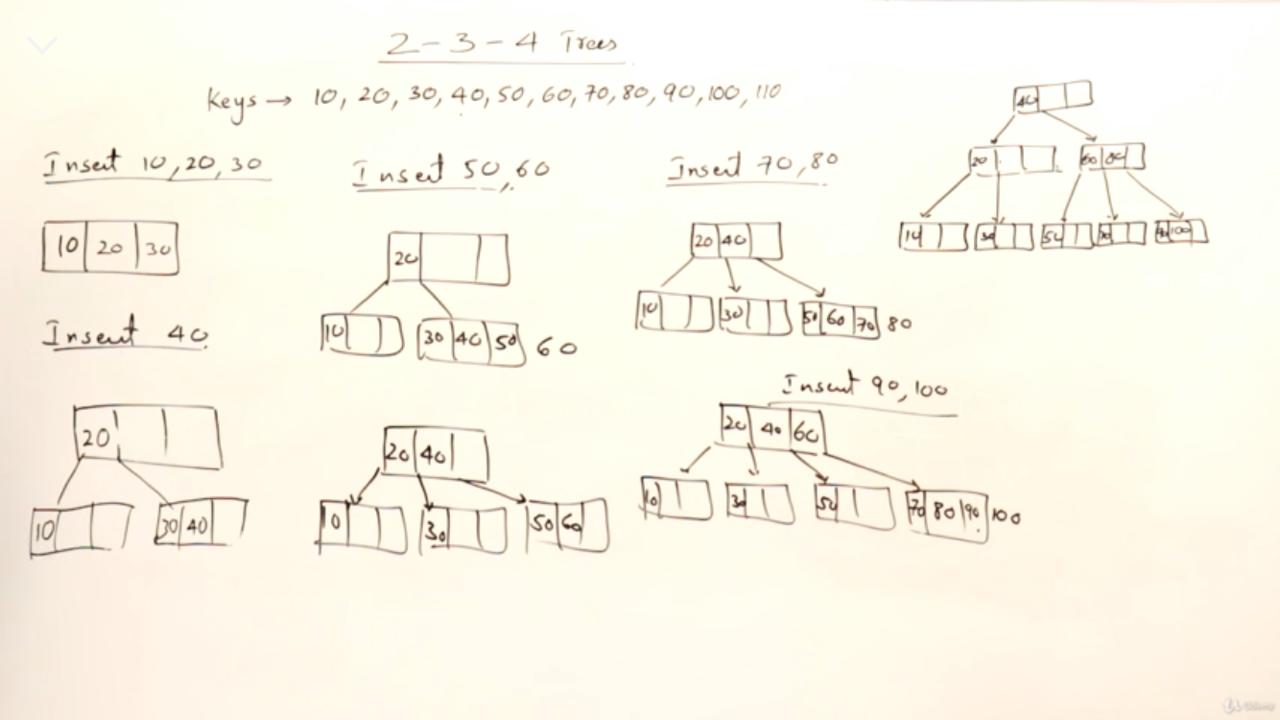 2-3-4 Trees
Keys → 10, 20, 30, 40, 50, 60, 70, 80, 90, 100, 110
Insert 10,20,30
10 20 30
Insert 40
20
10
30 40
Insert 50,60
20
10
30 40 50 60
20 40
10
30
50 60
Insert 70,80
20 40
10
30
50 60 70 80
Insert 90,100
20 40 60
10
30
50
70 80 90 100
40
20
60 80
10
30
50
70
90 100
Udemy